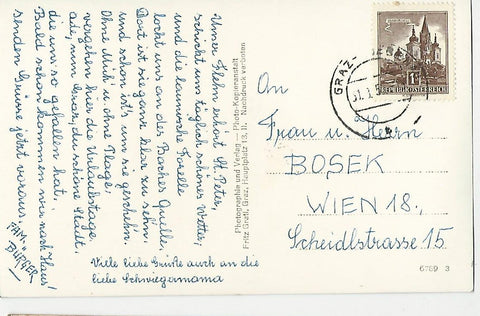 Unser Flehn erhört St. Peter,
schickt uns täglich schönes Wetter,
und die launische Forelle
lockt uns an des Baches Quelle.
Dort ist sie ganz klar zu sehn,
und schon ist's um sie geschehn.
Ohne Müh' u. ohne Plage,
vergehen hier die Urlaubstage.
Ade, nun Graz, du schöne Stadt,
die uns so gefallen hat.
Bald schon kommen wir nach Haus,
senden Grüsse jetzt voraus.
FAM.
BURGER
Viele liebe Grüße auch an die
liebe Schwiegermama
Photographie und Verlag — Photo-Kunstanstalt
Fritz Gratl, Graz, Hauptplatz 13, II. Nachdruck verboten
GRAZ
REPUBLIK ÖSTERREICH
An
Frau u. Herrn
BOSEK
WIEN 18.,
Scheidlstrasse 15.
6789 3